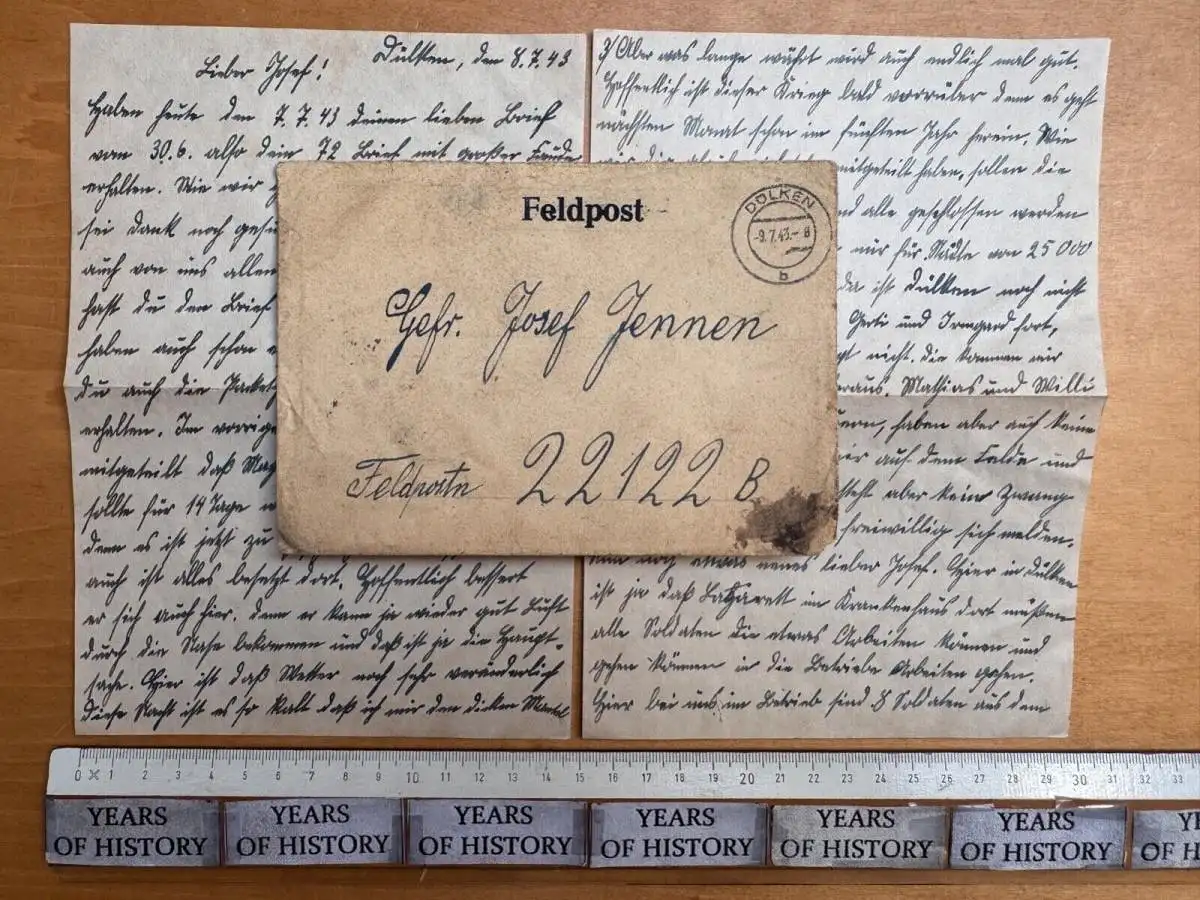 Dülken, den 8.7.43
Lieber Josef!
Haben heute den 7.7.43 deinen lieben Brief
vom 30.6. also dein 72 Brief mit großer Freude
erhalten. Wie wir
sei dank noch
auch von uns allen
hast du den Brief
haben auch schon
du auch die
erhalten. Im
mitgeteilt daß
sollte für 14 Tage
denn es ist jetzt zu
auch ist alles besetzt dort. Hoffentlich bessert
er sich auch hier. denn er kann ja wieder gut Luft
durch die Nase bekommen und daß ist ja die Haupt-
sache. Hier ist daß Wetter noch sehr veränderlich
diese Nacht ist es so kalt daß ich mir den dicken Mantel
Feldpost
DÜLKEN
-9.7.43.-8
b
Gefr. Josef Jennen
Feldpostn 22122 B
3/ Aber was lange währt wird auch endlich mal gut.
Hoffentlich ist dieser Krieg bald vorrüber denn es geht
nächsten Monat schon im fünften Jahr herein. Wie
mitgeteilt haben, sollen die
alle geschlossen werden
nur für Städte von 25000
da ist Dülken noch nicht
Gerti und Irmgard fort,
nicht. die kommen mir
Mathias und Willi
haben aber auch keine
auf dem Felde und
steht aber kein Zwang
freiwillig sich melden.
noch etwas neues lieber Josef. Hier in Dülken
ist ja daß Lazarett im Krankenhaus dort müßen
alle Soldaten die etwas Arbeiten können und
gehen können in die Betriebe Arbeiten gehen.
Hier bei uns im Betrieb sind 8 Soldaten aus dem
0 1 2 3 4 5 6 7 8 9 10 11 12 13 14 15 16 17 18 19 20 21 22 23 24 25 26 27 28 29 30 31 32 33
YEARS OF HISTORY
YEARS OF HISTORY
YEARS OF HISTORY
YEARS OF HISTORY
YEARS OF HISTORY
YEARS OF HISTORY